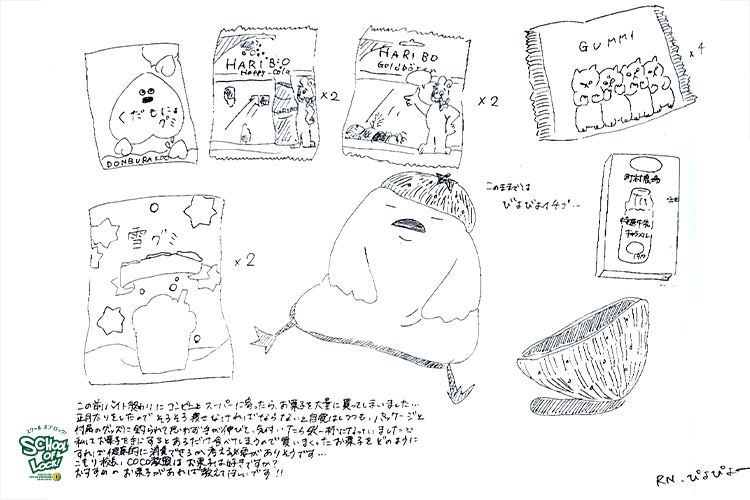 くだもにょ
グミ
DONBURAKO
HARIBO
Happy-Cola
HARIBO
×2
HARIBO
Goldbären
×2
GUMMI
×4
雪グミ
×2
このままでは
ぴよぴよイチゴ…
町村農場
特選牛乳
キャラメル
この前バイト終わりにコンビニとスーパーに寄ったら、お菓子を大量に買ってしまいました…
正月太りをしたのでそろそろ痩せなければならないと自覚はしつつも、パッケージと
付属のグッズに釣られて思わず手が伸びて、気付いたら祭り
私ってお菓子を手にするとあるだけ食べてしまうので愛しまくったお菓子をどのように
すれば健康的に消費できるか考える必要がありそうです…
こもり校長、COCO教頭はお菓子は好きですか?
おすすめのお菓子があれば教えてほしいです!!
スクール オブ ロック!
SCHOOL OF LOCK!
RN.ぴよぴよー